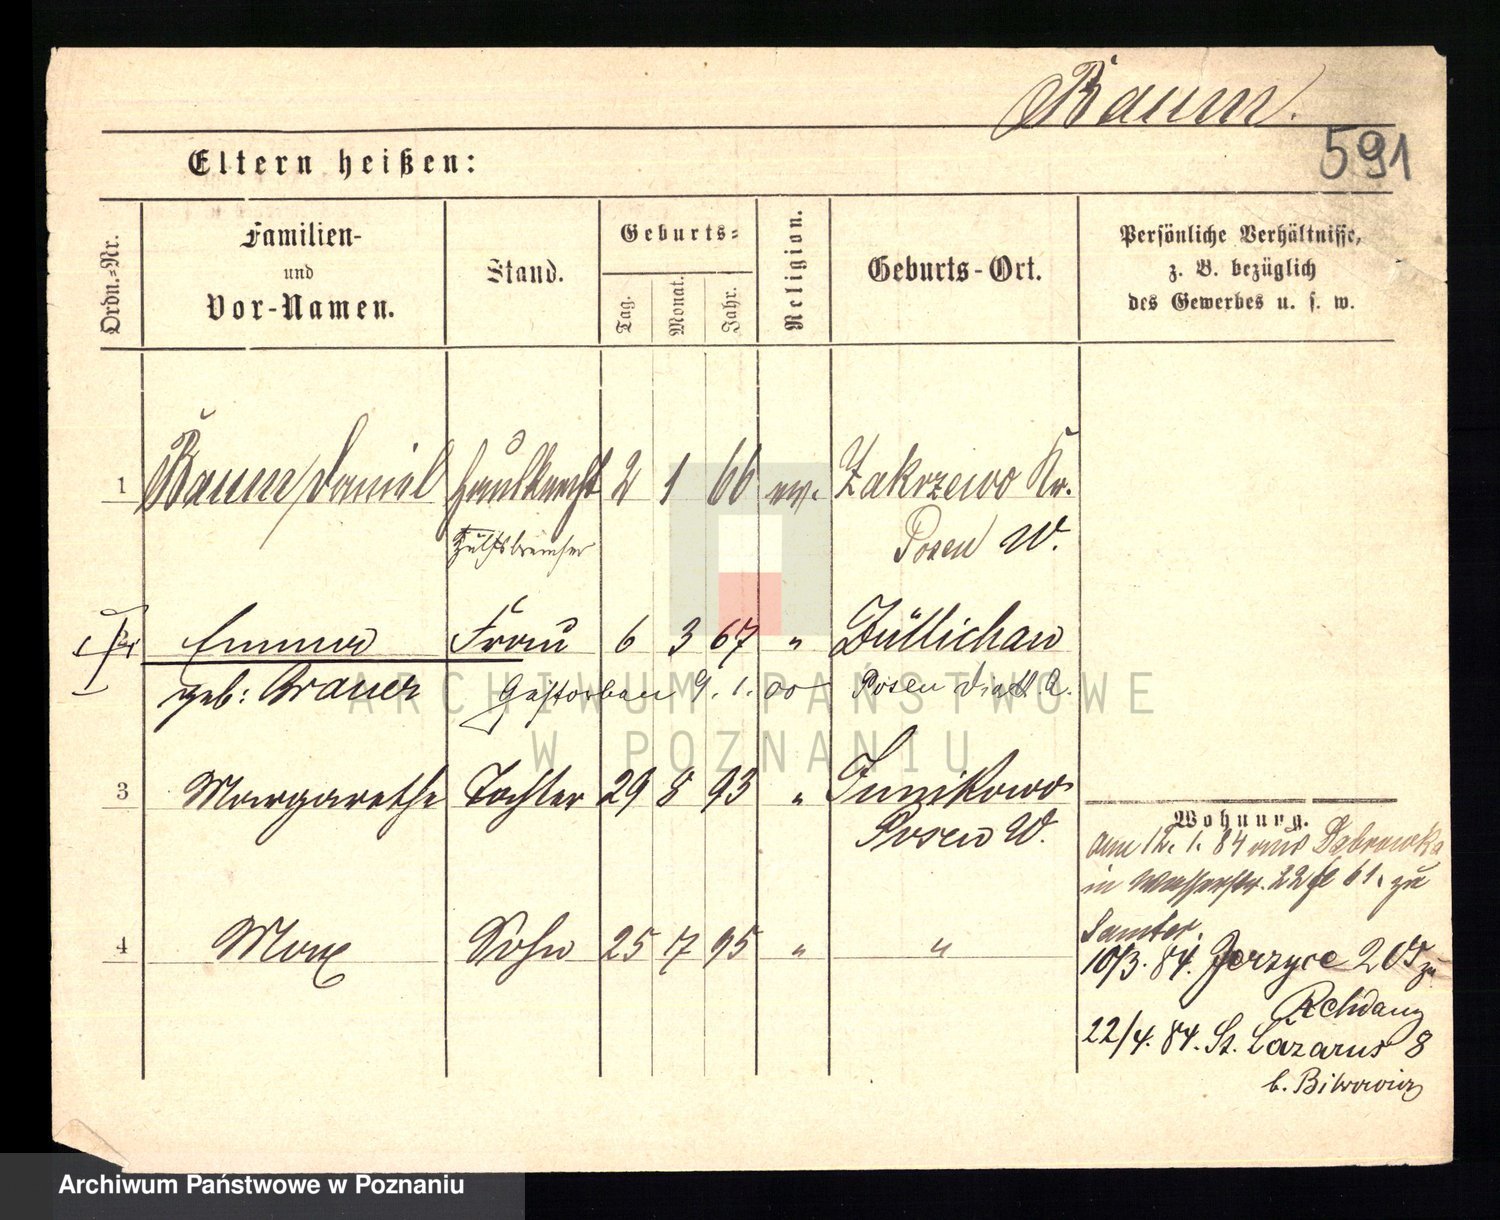 Baum.
591
Eltern heißen:
Ordn.-Nr.
Familien-
und
Vor-Namen.
Stand.
Geburts-
Tag.
Monat.
Jahr.
Religion.
Geburts-Ort.
Persönliche Verhältnisse,
z. B. bezüglich
des Gewerbes u. s. w.
1 Baum Daniel Hausknecht 2 1 66 ev. Zakrzewo Kr.
Hülfsbremser Posen W.
2 Emma Frau 6 3 67 " Züllichau
geb: Brauer Gestorben 9. 1. 00 Posen
3 Margarethe Tochter 29 8 93 " Junikowo
Posen W.
4 Max Sohn 25 7 95 " "
Wohnung.
am 12. 1. 84 aus Dabrowka
in Wasserstr. 22 61. zu
Samter.
10/3. 84. Jerzyce 20 zu
22/4. 84. St. Lazarus 8
b.
ARCHIWUM PAŃSTWOWE
W POZNANIU
Archiwum Państwowe w Poznaniu